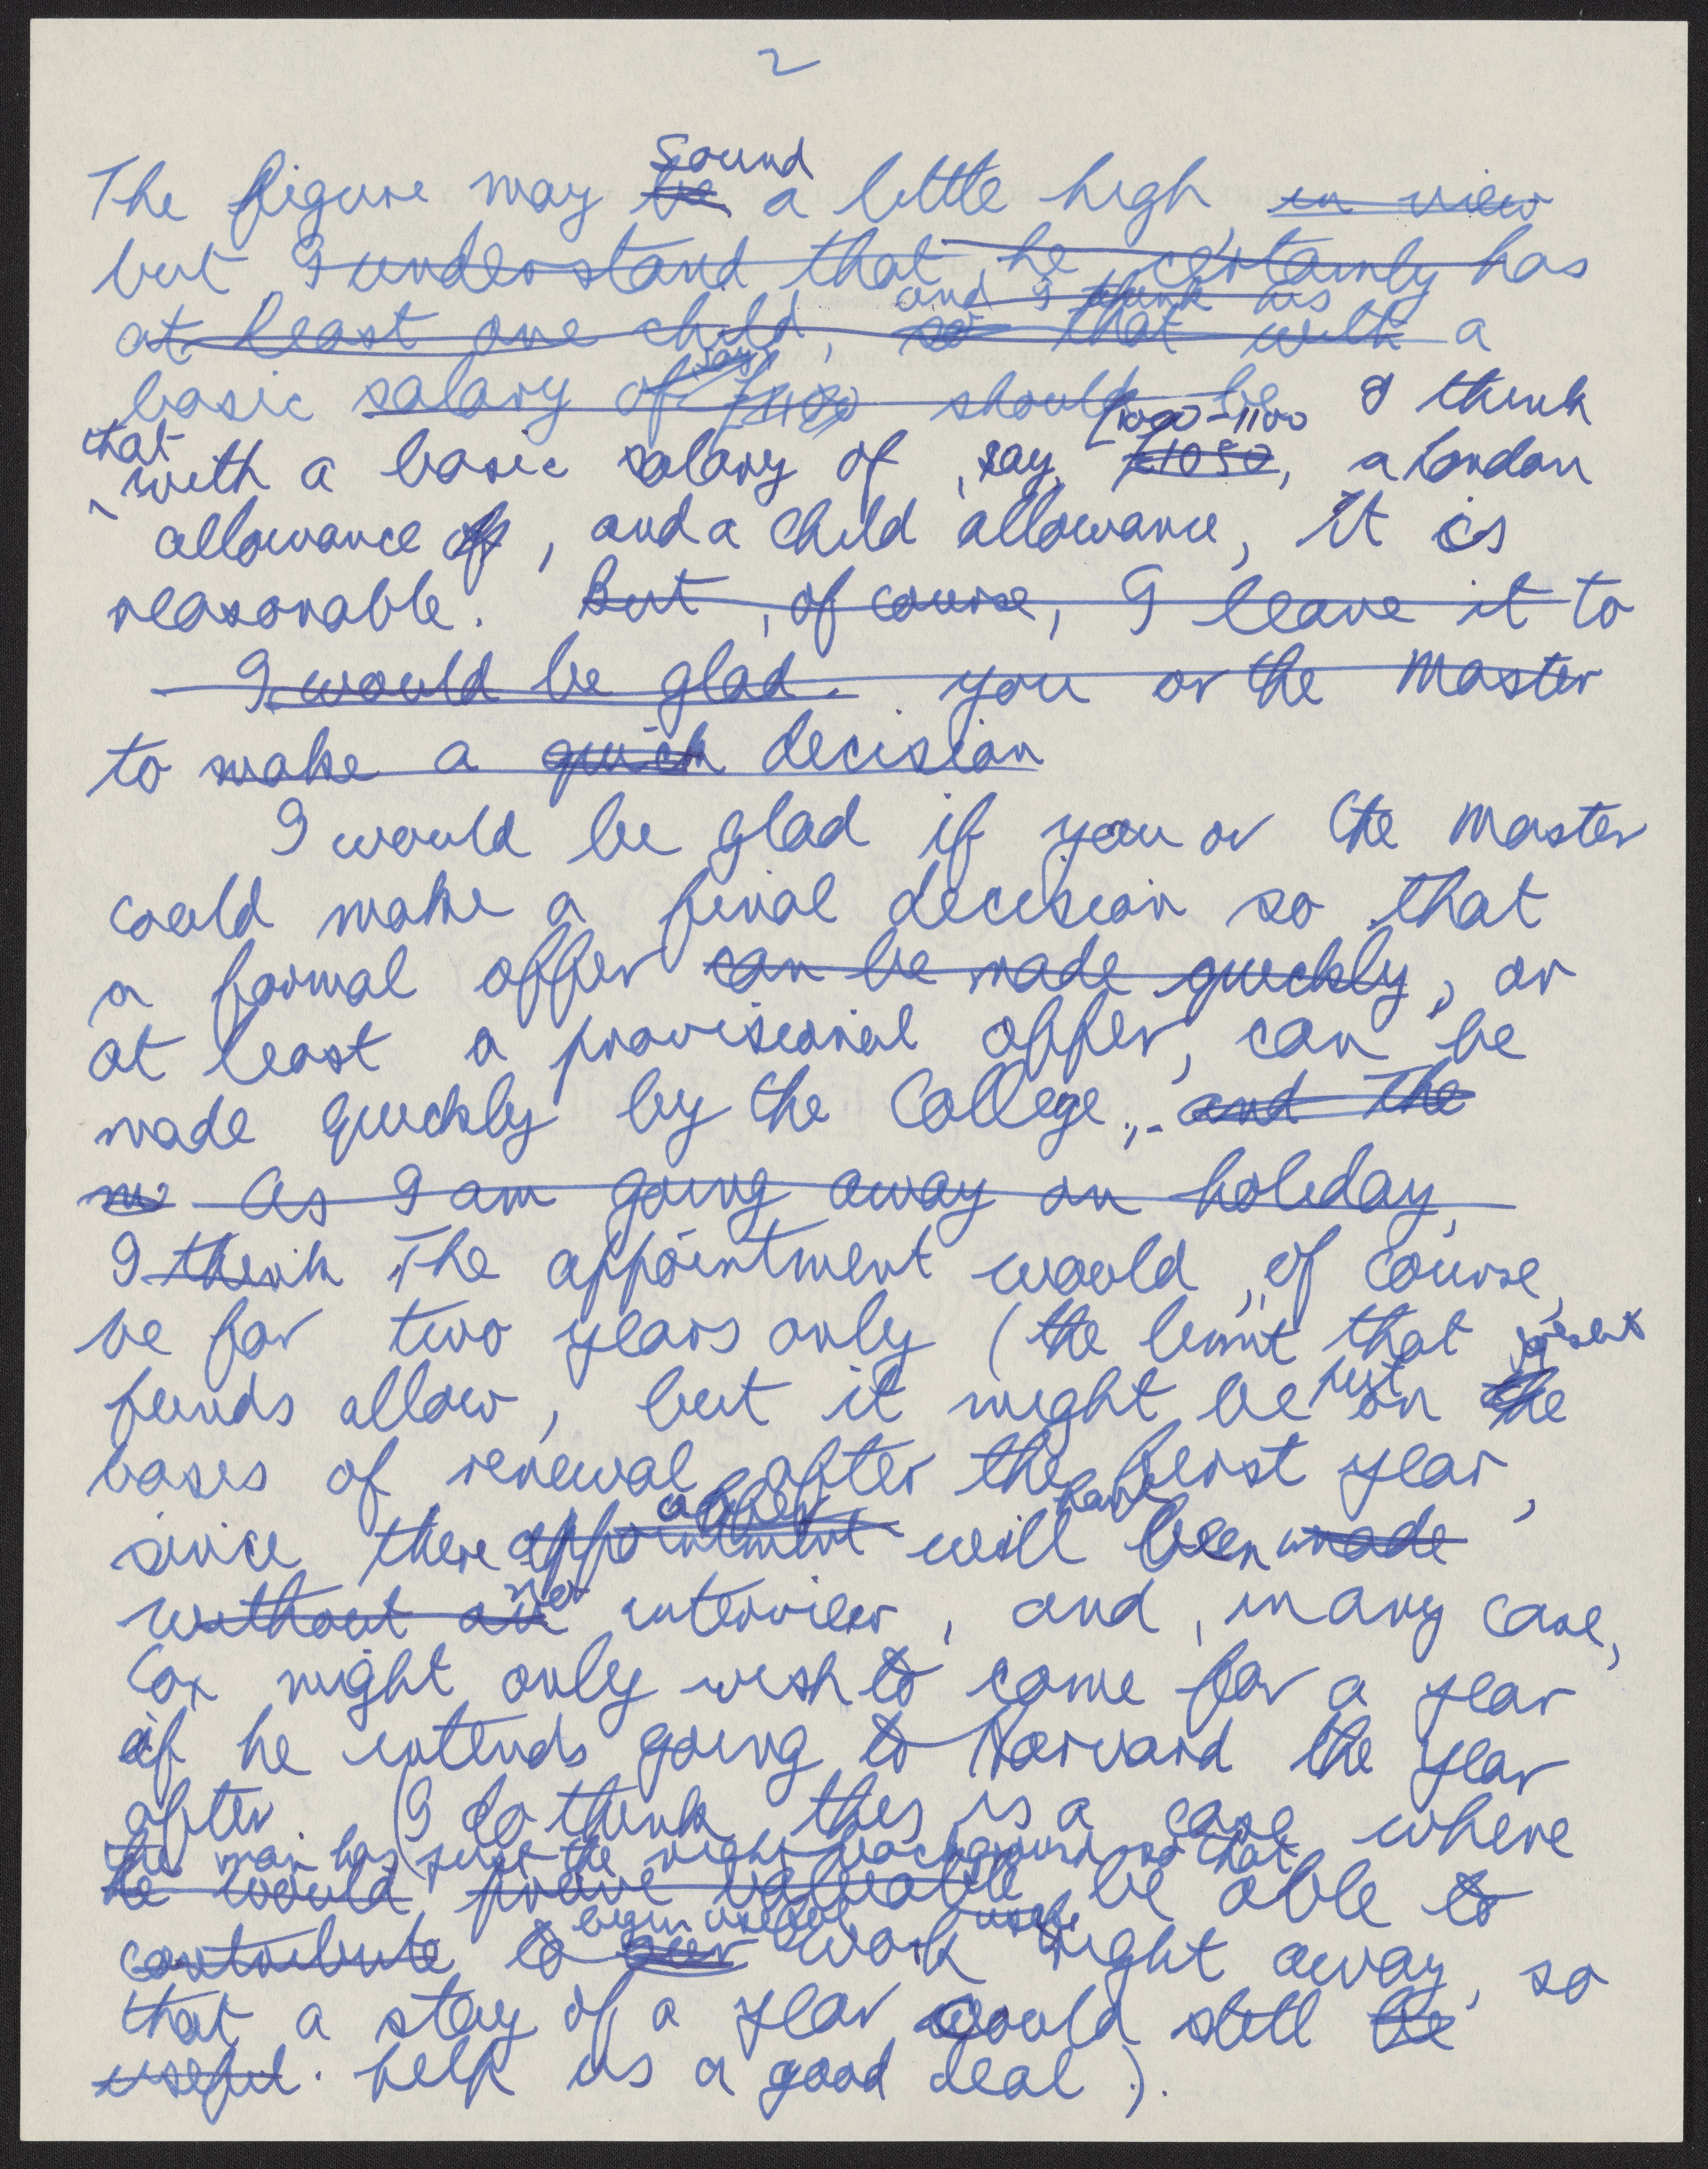 2
Sound
The figure may be a little high in view
but I understand that, he certainly has
and I think his
at least one child, so that with a
say
basic salary of £1100 should be I think
that £1000-1100
with a basic salary of, say, £1050, a London
allowance of, and a child allowance, it is
reasonable. But, of course, I leave it to
I would be glad. you or the Master
to make a quick decision
I would be glad if you or the Master
could make a final decision so that
a formal offer can be made quickly, or
at least a provisional offer, can be
made quickly by the College,. and the
As I am going away on holiday,
I think The appointment would, of course,
be for two years only (the limit that present
funds allow, but it might be put on the
bases of renewal after the first year,
after have
since there appointment will been made
no
without an interview, and, in any case,
Cox might only wish to come for a year
if he intends going to Harvard the year
after. (I do think this is a case where
the man has just the right background so that
he would prove valuable be able to
begin useful
contribute to our work right away, so
that a stay of a year would still be
useful. help us a good deal).